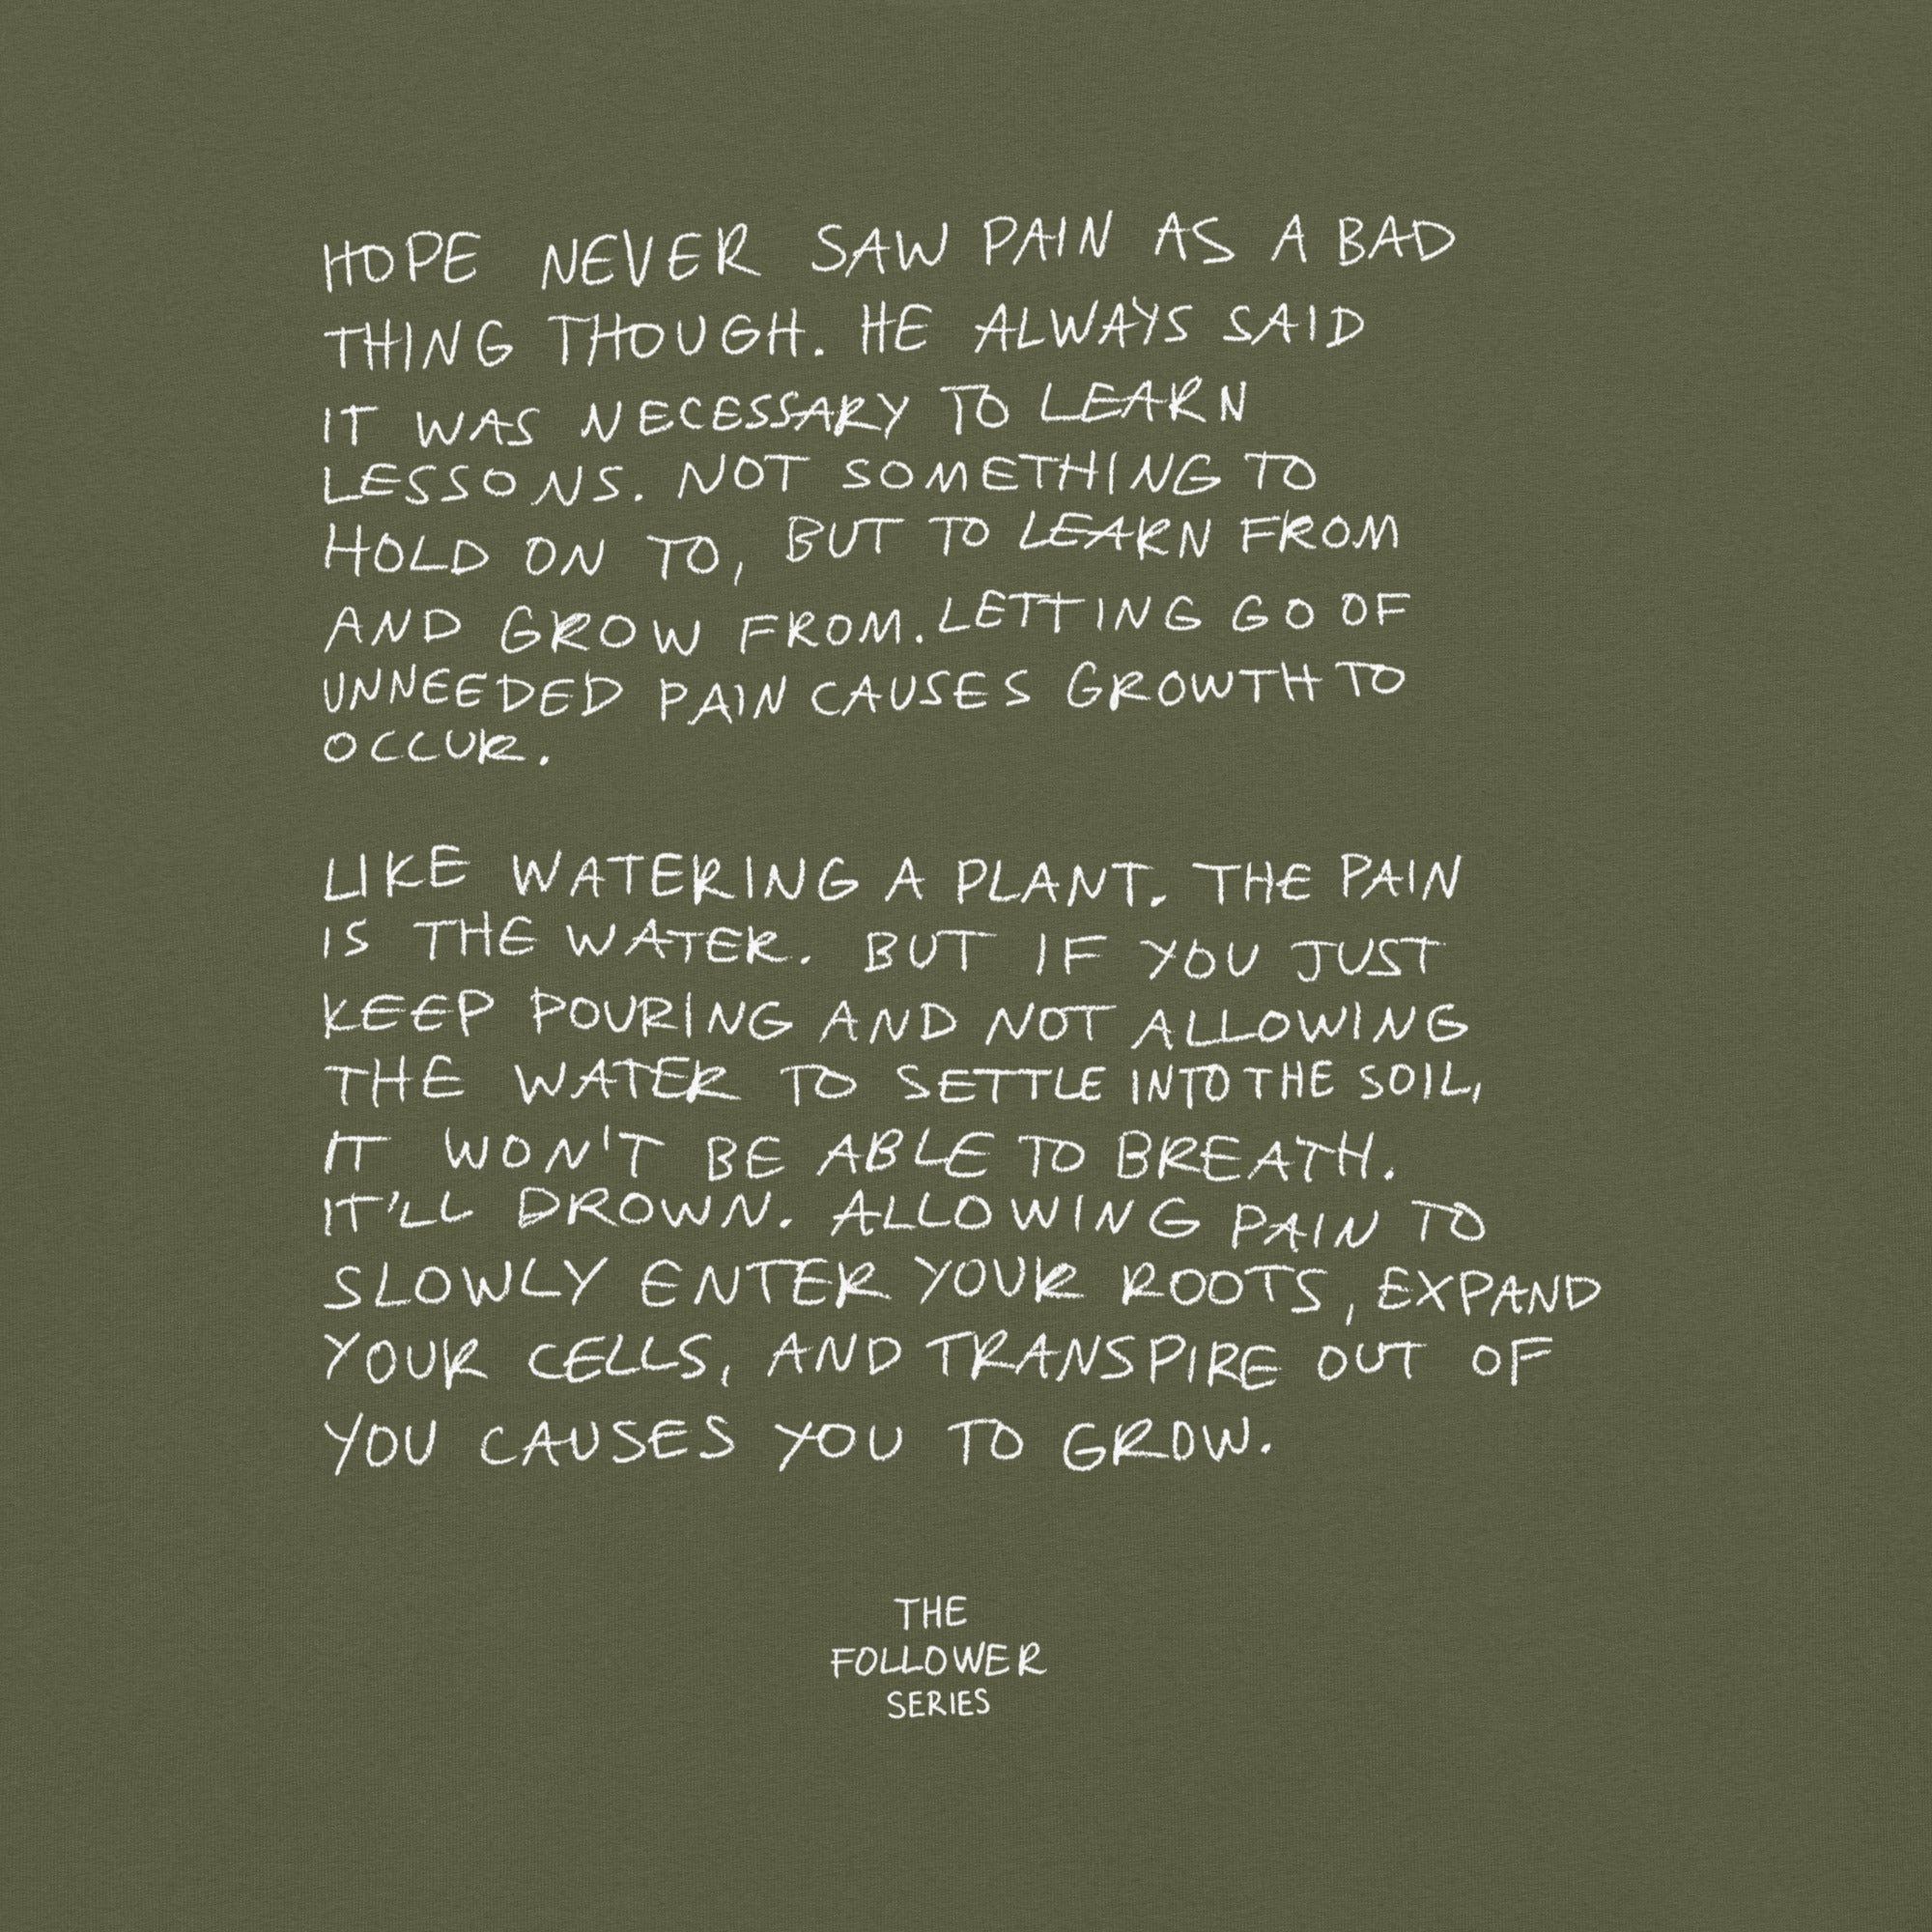 HOPE NEVER SAW PAIN AS A BAD
THING THOUGH. HE ALWAYS SAID
IT WAS NECESSARY TO LEARN
LESSONS. NOT SOMETHING TO
HOLD ON TO, BUT TO LEARN FROM
AND GROW FROM. LETTING GO OF
UNNEEDED PAIN CAUSES GROWTH TO
OCCUR.
LIKE WATERING A PLANT. THE PAIN
IS THE WATER. BUT IF YOU JUST
KEEP POURING AND NOT ALLOWING
THE WATER TO SETTLE INTO THE SOIL,
IT WON'T BE ABLE TO BREATH.
IT'LL DROWN. ALLOWING PAIN TO
SLOWLY ENTER YOUR ROOTS, EXPAND
YOUR CELLS, AND TRANSPIRE OUT OF
YOU CAUSES YOU TO GROW.
THE
FOLLOWER
SERIES